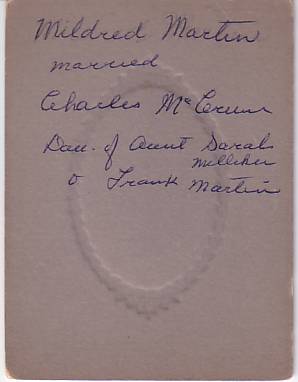 Mildred Martin
married
Charles McCrum
Dau. of Aunt Sarah
Milliken
& Frank Martin